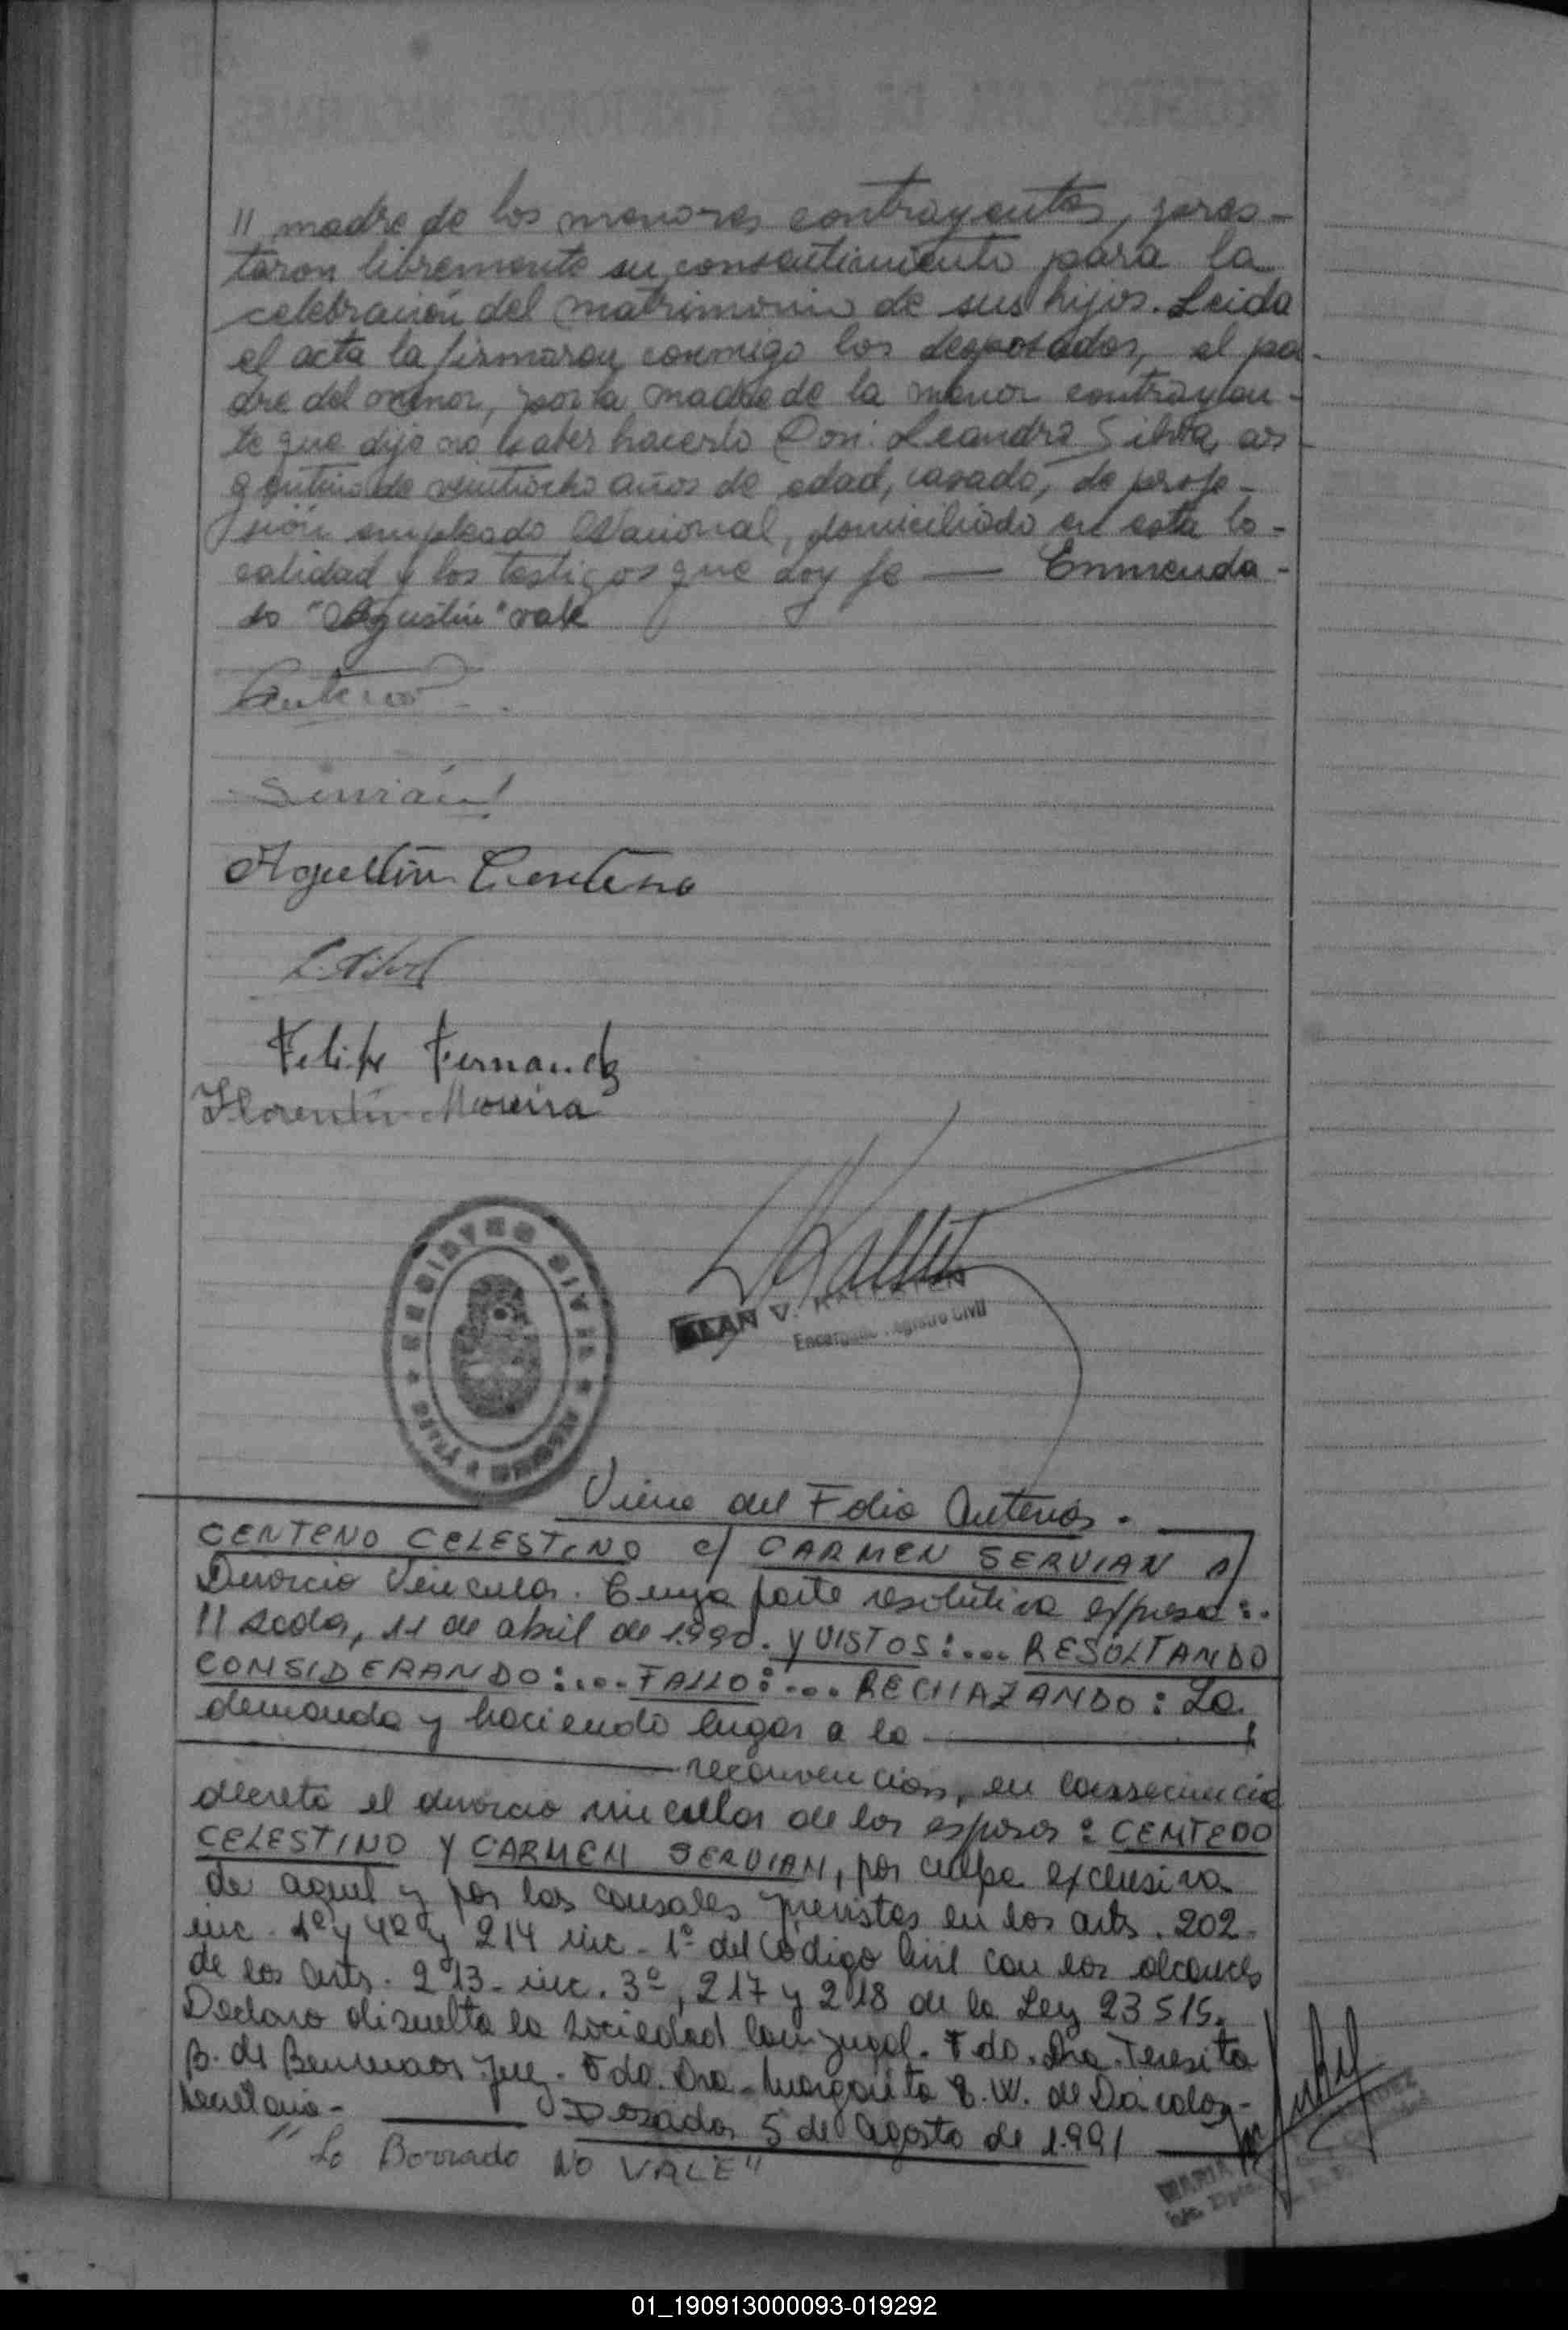 11 madre de los menores contrayentes, pres-
taron libremente su consentimiento para la
celebración del matrimonio de sus hijos. Leida
el acta la firmaron conmigo los desposados, el pa-
dre del menor, por la madre de la menor contrayen-
te que dijo no saber hacerlo Don: Leandro Silva, ar-
gentino de veintiocho años de edad, casado, de profe-
sión empleado Nacional, domiciliado en esta lo-
calidad y los testigos que doy fe — Enmenda-
do "Agustin" vale
Centeno
Servián
Agustin Centeno
L. Silva
Felipe Fernandez
Florentin Moreira
V.
Encargado Registro Civil
Viene del Folio Anterior.
CENTENO CELESTINO c/ CARMEN SERVIAN s/
Divorcio Vincular. Cuya parte resolutiva expresa:.
11 sadas, 11 de abril de 1.990. y VISTOS:... RESULTANDO
CONSIDERANDO:... FALLO:... RECHAZANDO: La
demanda y haciendo lugar a la
reconvencion, en consecuencia
decreto el divorcio vincular de los esposos: CENTEDO
CELESTINO Y CARMEN SERVIAN, por culpa exclusiva
de aquel y por las causales previstas en los arts. 202-
inc. 1º y 4º y 214 inc. 1º del Código Civil con los alcances
de los arts. 213- inc. 3º, 217 y 218 de la Ley 23515.
Declaro disuelta la sociedad conyugal. Fdo. Dra. Teresita
B. de Juez. Fdo. Dra. Margarita E. W. de
Secretaria-
Posadas 5 de Agosto de 1.991
"Lo Borrado NO VALE"
MARIA
01_190913000093-019292